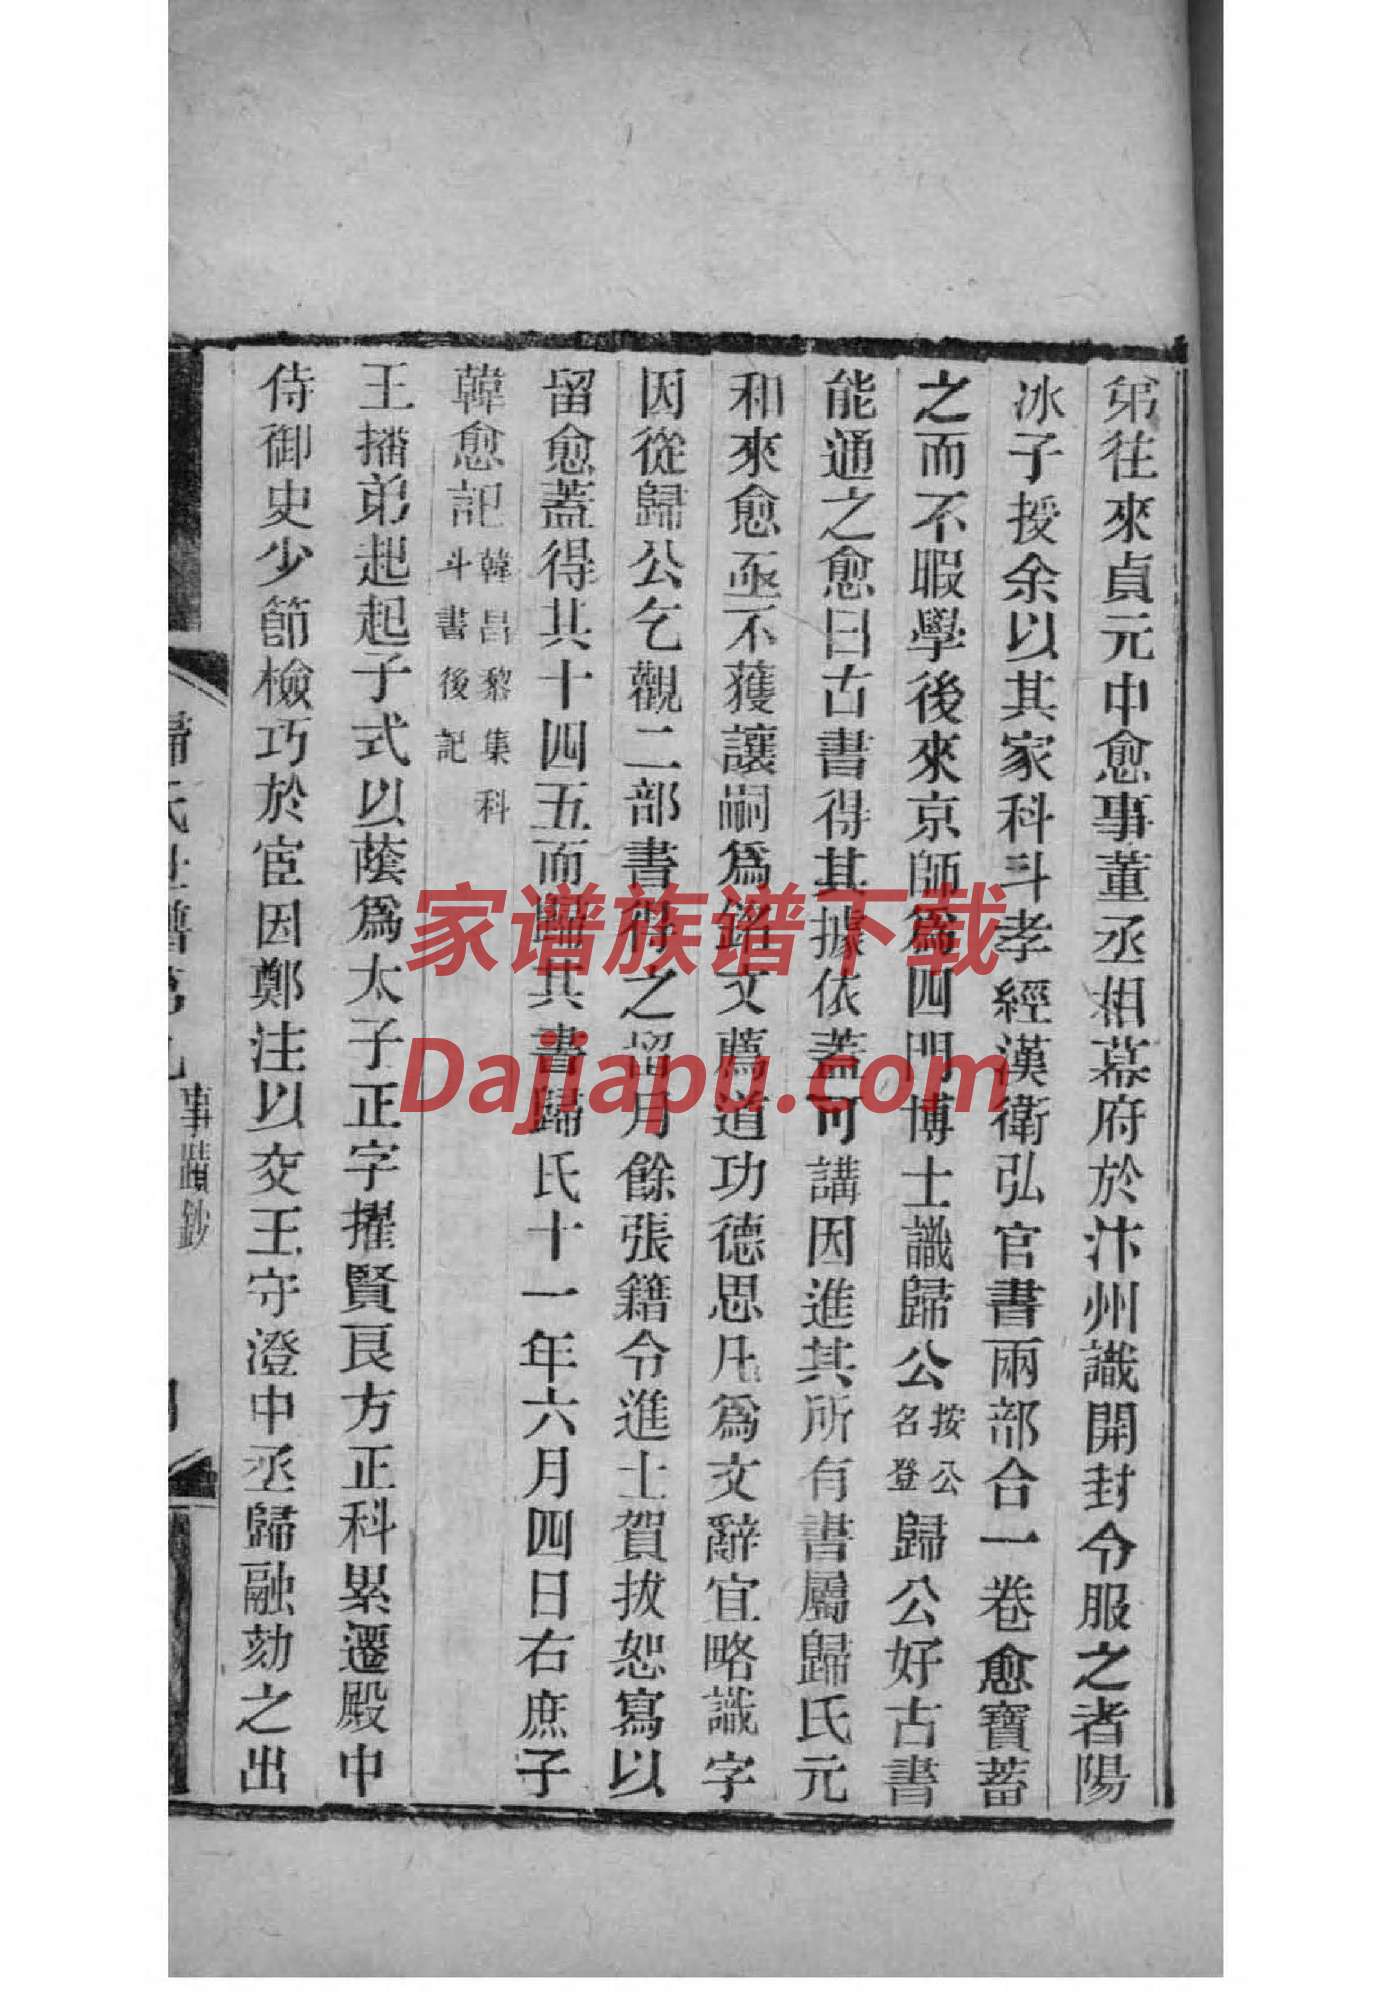 弟往來貞元中愈事董丞相幕府於汴州識開封令服之者陽
冰子授余以其家科斗孝經漢衛弘官書兩部合一卷愈寶蓄
之而不暇學後來京師爲四門博士識歸公按公名登歸公好古書
能通之愈曰古書得其據依蓋可講因進其所有書屬歸氏元
和來愈亟不獲讓嗣爲銘文薦道功德思凡爲文辭宜略識字
因從歸公乞觀二部書得之留月餘張籍令進士賀拔恕寫以
留愈蓋得其十四五而歸其書歸氏十一年六月四日右庶子
韓愈記韓昌黎集科斗書後記
王播弟起起子式以蔭爲太子正字擢賢良方正科累遷殿中
侍御史少節檢巧於宦因鄭注以交王守澄中丞歸融劾之出
歸氏世譜
事蹟鈔
家谱族谱下载
Dajiapu.com